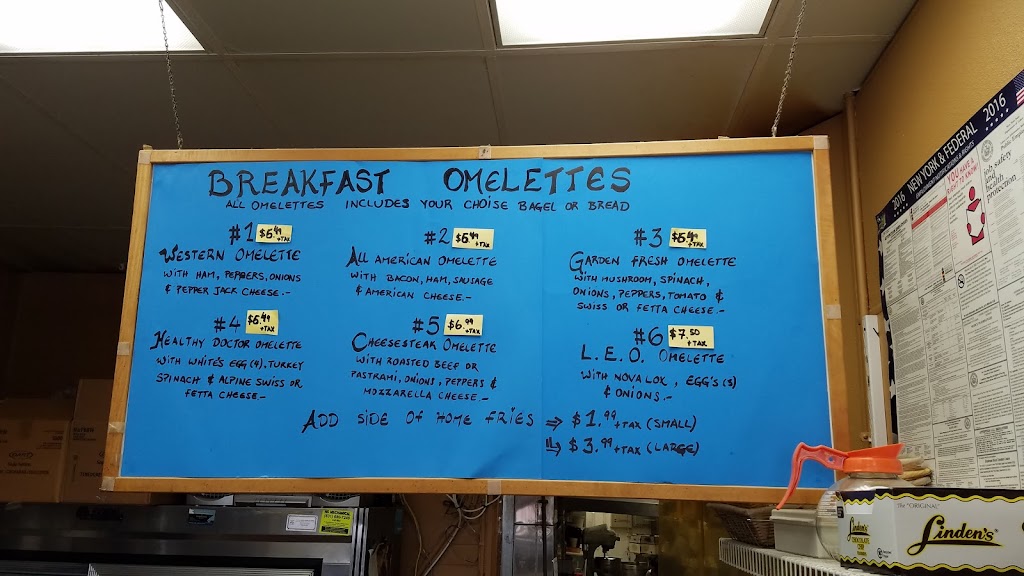 BREAKFAST OMELETTES
ALL OMELETTES INCLUDES YOUR CHOISE BAGEL OR BREAD
#1 $6.49 +TAX
WESTERN OMELETTE
WITH HAM, PEPBERS, ONIONS
& PEPPER JACK CHEESE.-
#2 $6.49 +TAX
ALL AMERICAN OMELETTE
WITH BACON, HAM, SAUSAGE
& AMERICAN CHEESE.-
#3 $6.49 +TAX
GARDEN FRESH OMELETTE
WITH MUSHROOM, SPINACH,
ONIONS, PEPPERS, TOMATO &
SWISS OR FETTA CHEESE.-
#4 $6.49 +TAX
HEALTHY DOCTOR OMELETTE
WITH WHITE'S EGG (4), TURKEY
SPINACH & ALPINE SWISS OR
FETTA CHEESE.-
#5 $6.99 +TAX
CHEESESTEAK OMELETTE
WITH ROASTED BEEF OR
PASTRAMI, ONIONS, PEPPERS &
MOZZARELLA CHEESE.-
#6 $7.50 +TAX
L.E.O. OMELETTE
WITH NOVA LOX, EGG'S (3)
& ONIONS.-
ADD SIDE OF HOME FRIES ⇒ $1.99 +TAX (SMALL)
$3.99 +TAX (LARGE)
2016 NEW YORK & FEDERAL 2016
YOU HAVE A RIGHT TO KNOW!
job safety
health
protection
The "ORIGINAL"
Linden's
Linden's